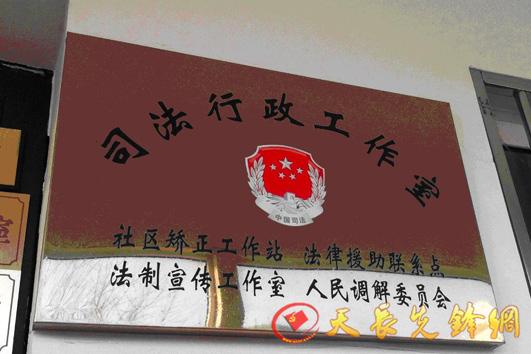 司法行政工作室
中国司法
社区矫正工作站 法律援助联系点
法制宣传工作室 人民调解委员会
天长先锋網
宣